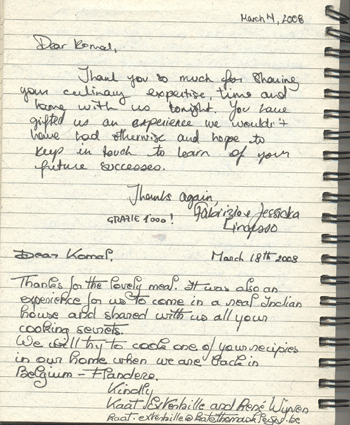 March 14, 2008
Dear Komal,
Thank you so much for sharing
your culinary expertise, time and
home with us tonight. You have
gifted us an experience we wouldn't
have had otherwise and hope to
keep in touch to learn of your
future successes.
Thanks again,
Fabrizio e Jessicka
GRAZIE 1000!
Dear Komal.
March 18th 2008
Thanks for the lovely meal. It was also an
experience for us to come in a real Indian
house and shared with us all your
cooking secrets.
We will try to cook one of your recipies
in our home when we are back in
Belgium - Flanders.
Kindly
Kaat and René